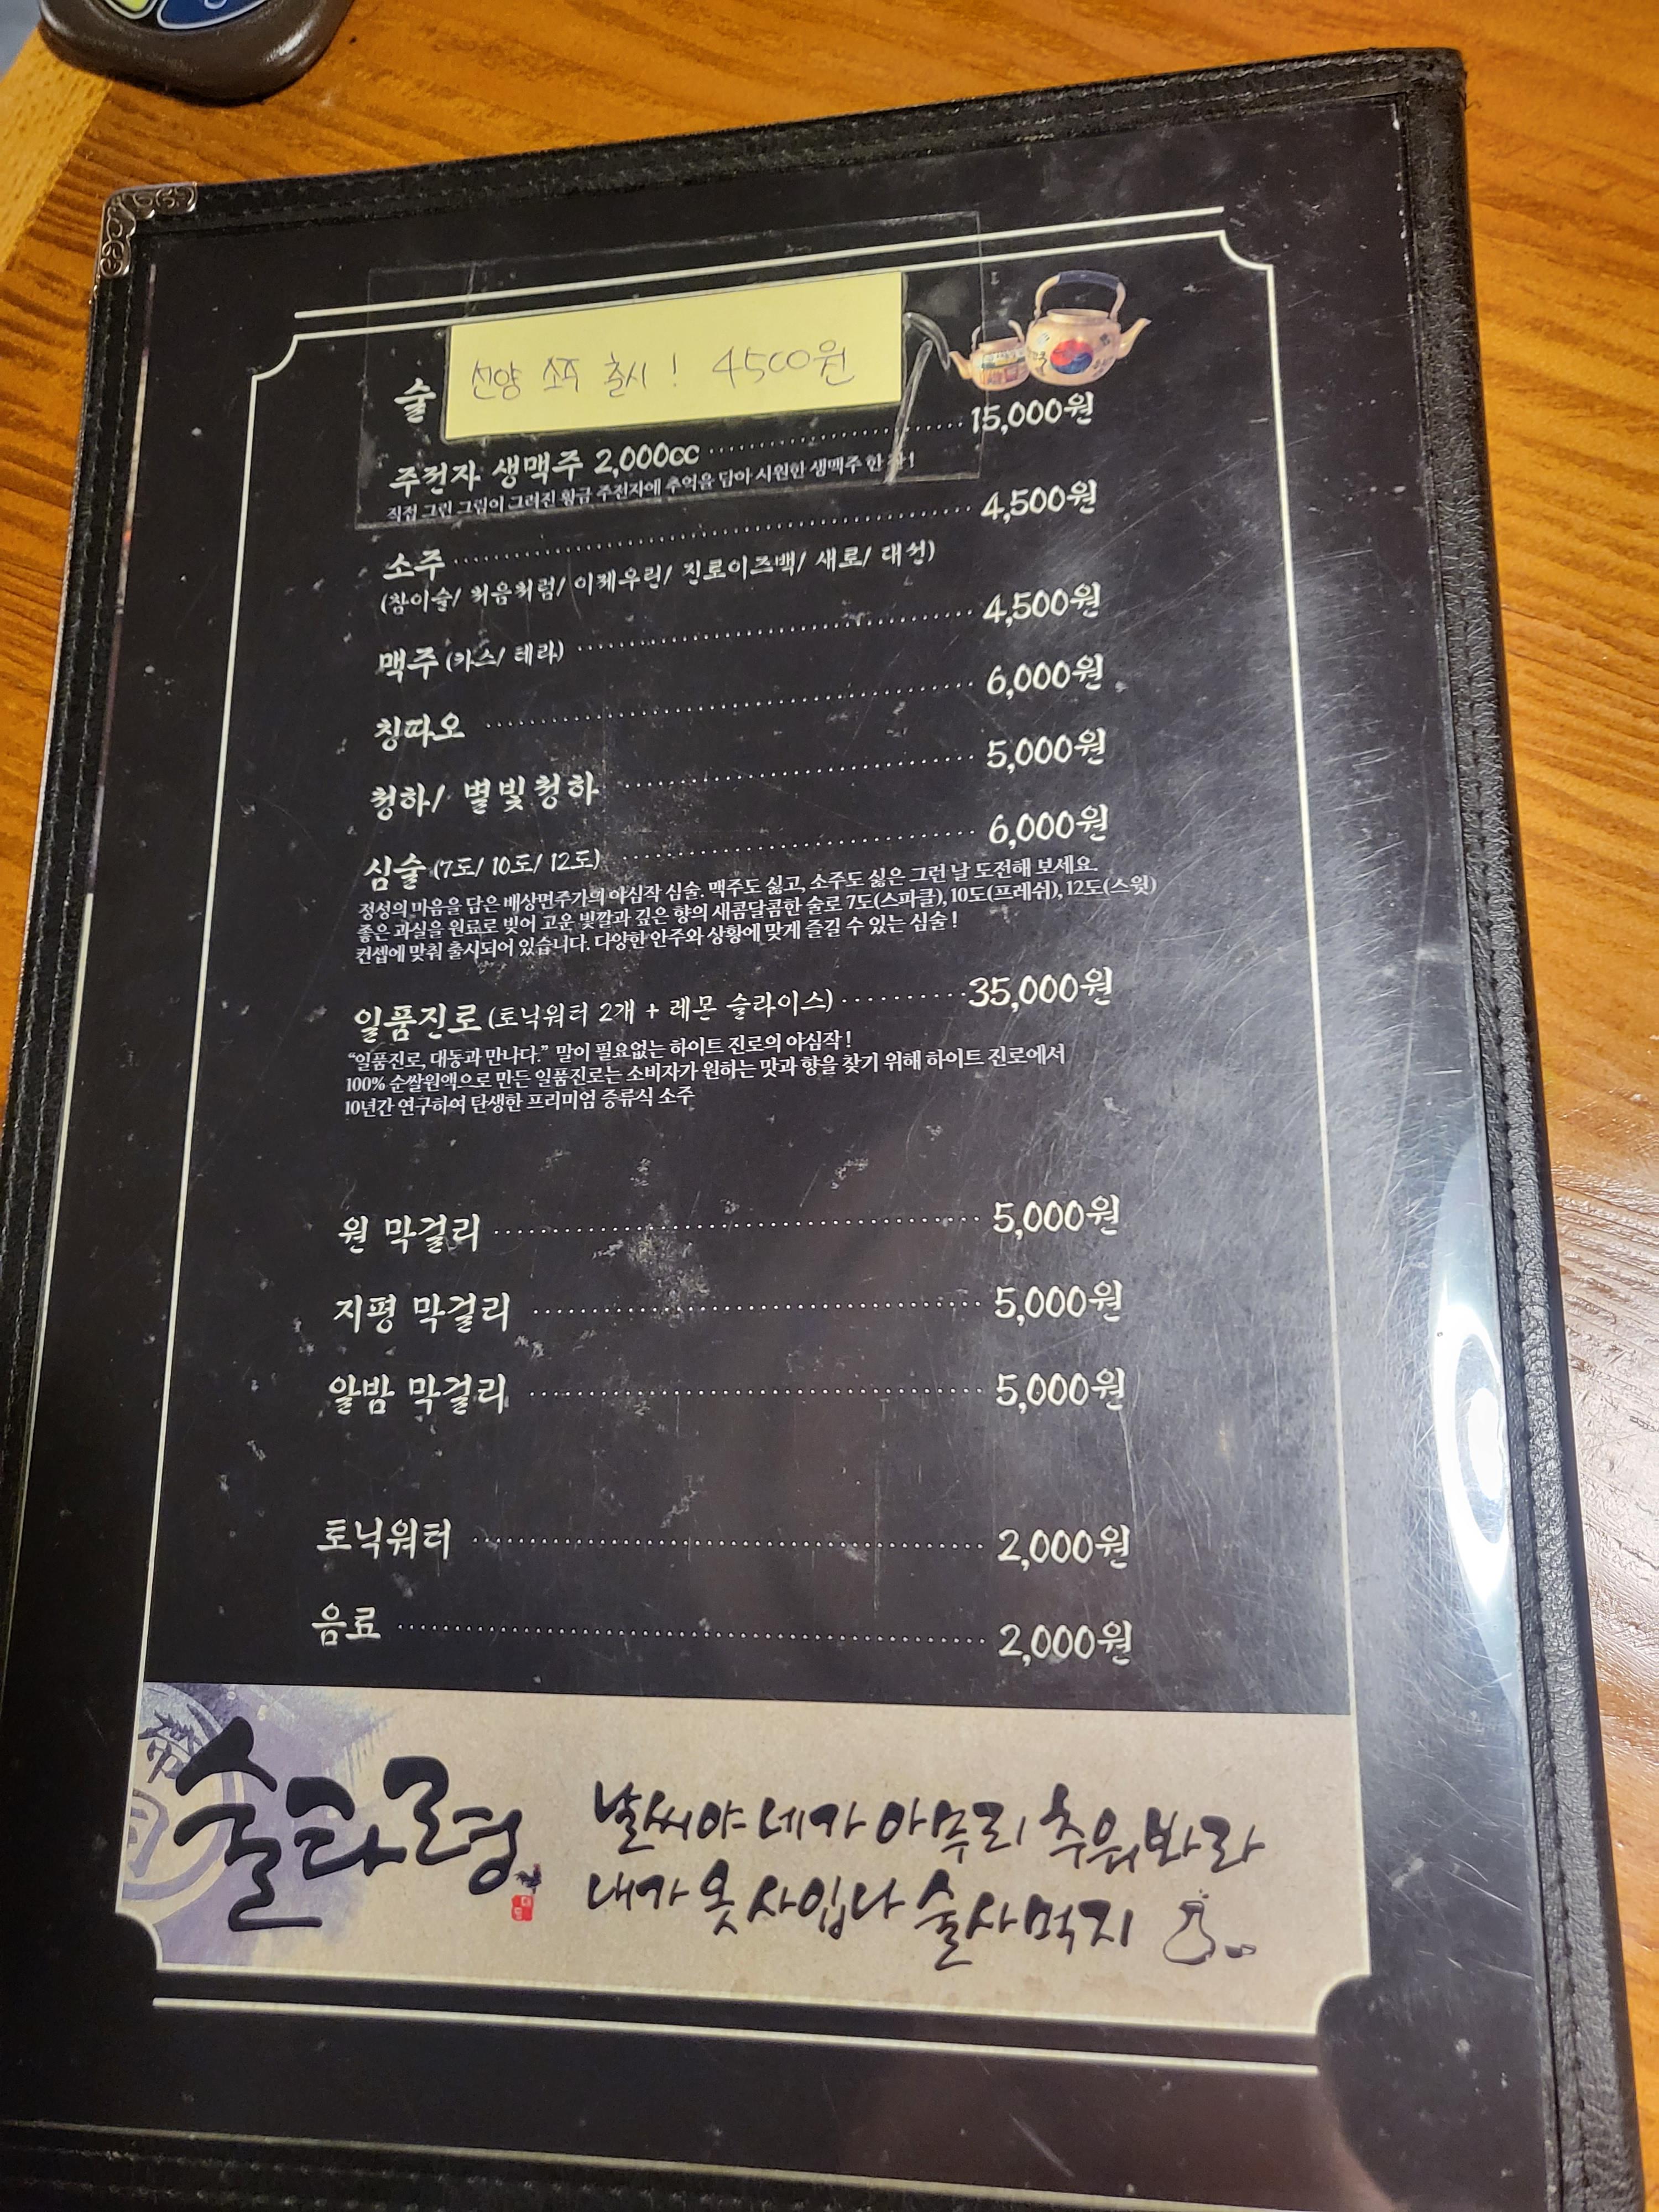 선양 소주 출시! 4500원
술
주전자 생맥주 2,000cc 15,000원
직접 그린 그림이 그려진 황금 주전자에 추억을 담아 시원한 생맥주 한 잔!
소주 4,500원
(참이슬/ 처음처럼/ 이제우린/ 진로이즈백/ 새로/ 대선)
맥주 (카스/ 테라) 4,500원
칭따오 6,000원
청하/ 별빛청하 5,000원
심술 (7도/ 10도/ 12도) 6,000원
정성의 마음을 담은 배상면주가의 야심작 심술. 맥주도 싫고, 소주도 싫은 그런 날 도전해 보세요.
좋은 과실을 원료로 빚어 고운 빛깔과 깊은 향의 새콤달콤한 술로 7도(스파클), 10도(프레쉬), 12도(스윗)
컨셉에 맞춰 출시되어 있습니다. 다양한 안주와 상황에 맞게 즐길 수 있는 심술!
일품진로 (토닉워터 2개 + 레몬 슬라이스) 35,000원
“일품진로, 대동과 만나다.” 말이 필요없는 하이트 진로의 야심작!
100% 순쌀원액으로 만든 일품진로는 소비자가 원하는 맛과 향을 찾기 위해 하이트 진로에서
10년간 연구하여 탄생한 프리미엄 증류식 소주
원 막걸리 5,000원
지평 막걸리 5,000원
알밤 막걸리 5,000원
토닉워터 2,000원
음료 2,000원
술타령
날씨야 네가 아무리 추워봐라
내가 옷 사입나 술사먹지